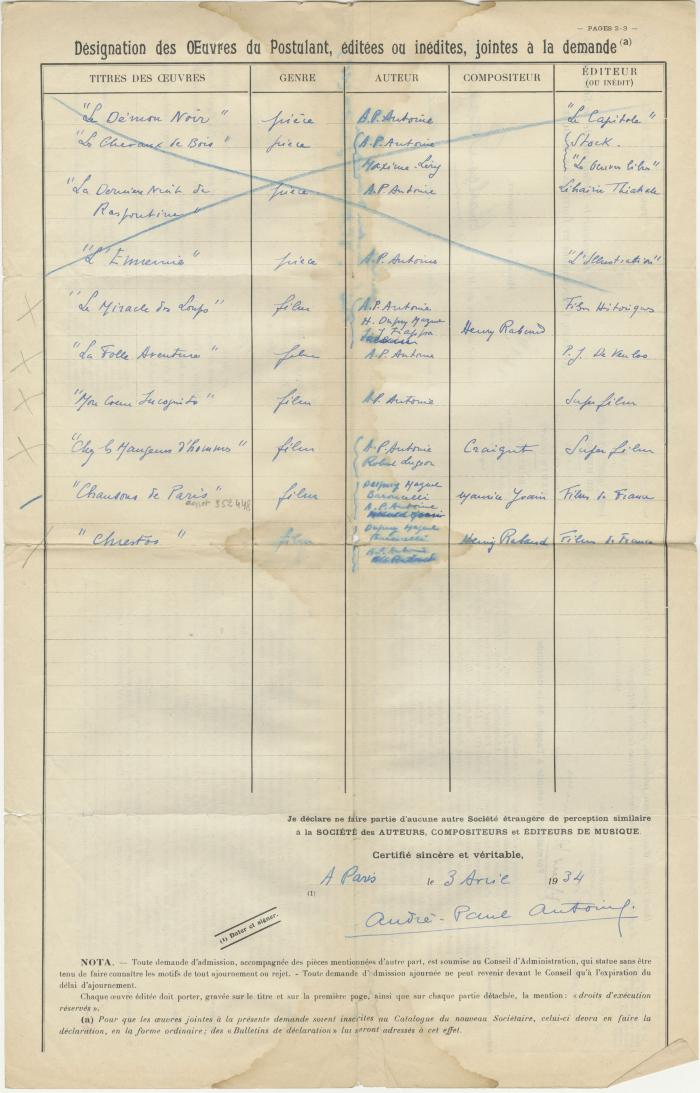 — PAGES 2-3 —
Désignation des Œuvres du Postulant, éditées ou inédites, jointes à la demande (a)
TITRES DES ŒUVRES GENRE AUTEUR COMPOSITEUR ÉDITEUR
(OU INÉDIT)
"Le Démon Noir" pièce A.P. Antoine "Le Capitole"
"Les Chevaux de Bois" pièce A.P. Antoine Stock.
Maxime-Léry
"La Dernière Nuit de pièce A.P. Antoine Librairie Théatrale
Raspoutine"
"L'Ennemie" pièce A.P. Antoine "L'Illustration"
"Le Miracle des Loups" film A.P. Antoine Films Historiques
H. Dupuy Mazuel
Henry Rabaud
"La Folle Aventure" film A.P. Antoine P.J. De Venloo
"Mon Cœur Incognito" film A.P. Antoine Super film
"Chez les Mangeurs d'hommes" film A.P. Antoine Super film
Robert Lugeon
"Chansons de Paris" film Dupuy Mazuel Maurice Yvain Films de France
Baroncelli
352448 A.P. Antoine
"Chrestos" film Dupuy Mazuel Henry Rabaud Films de France
Baroncelli
A.P. Antoine
Je déclare ne faire partie d'aucune autre Société étrangère de perception similaire
à la SOCIÉTÉ des AUTEURS, COMPOSITEURS et ÉDITEURS DE MUSIQUE.
Certifié sincère et véritable,
A Paris le 3 Avril 1934
(1)
André-Paul Antoine.
(1) Dater et signer.
NOTA. — Toute demande d'admission, accompagnée des pièces mentionnées d'autre part, est soumise au Conseil d'Administration, qui statue sans être
tenu de faire connaître les motifs de tout ajournement ou rejet. - Toute demande d'admission ajournée ne peut revenir devant le Conseil qu'à l'expiration du
délai d'ajournement.
Chaque œuvre éditée doit porter, gravée sur le titre et sur la première page, ainsi que sur chaque partie détachée, la mention : « droits d'exécution
réservés ».
(a) Pour que les œuvres jointes à la présente demande soient inscrites au Catalogue du nouveau Sociétaire, celui-ci devra en faire la
déclaration, en la forme ordinaire; des « Bulletins de déclaration » lui seront adressés à cet effet.